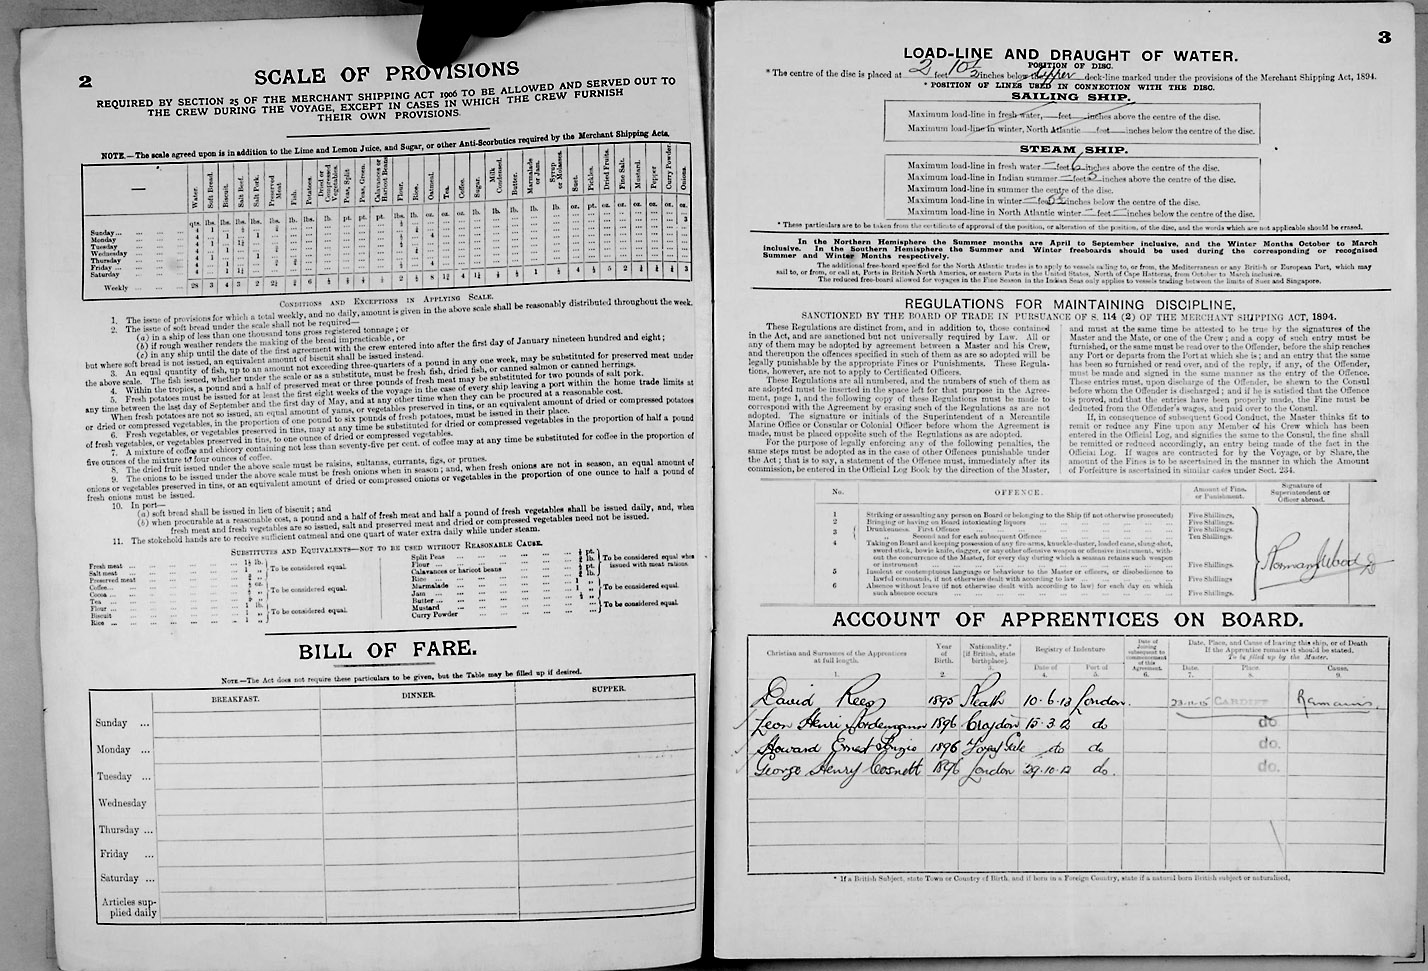 2
SCALE OF PROVISIONS
REQUIRED BY SECTION 25 OF THE MERCHANT SHIPPING ACT 1906 TO BE ALLOWED AND SERVED OUT TO
THE CREW DURING THE VOYAGE, EXCEPT IN CASES IN WHICH THE CREW FURNISH
THEIR OWN PROVISIONS.
NOTE.—The scale agreed upon is in addition to the Lime and Lemon Juice, and Sugar, or other Anti-Scorbutics required by the Merchant Shipping Acts.
Water. Soft Bread. Biscuit. Salt Beef. Salt Pork. Preserved Meat Fish. Potatoes. Dried or Compressed Vegetables. Peas, Split Peas, Green. Calavances or Haricot Beans Flour. Rice. Oatmeal. Tea. Coffee. Sugar. Milk Condensed. Butter. Marmalade or Jam. Syrup or Molasses. Suet. Pickles. Dried Fruits. Fine Salt. Mustard. Pepper Curry Powder. Onions.
Sunday...
Monday
Tuesday
Wednesday
Thursday
Friday
Saturday
Weekly
CONDITIONS AND EXCEPTIONS IN APPLYING SCALE.
1. The issue of provisions for which a total weekly, and no daily, amount is given in the above scale shall be reasonably distributed throughout the week.
2. The issue of soft bread under the scale shall not be required—
(a) in a ship of less than one thousand tons gross registered tonnage; or
(b) if rough weather renders the making of the bread impracticable, or
(c) in any ship until the date of the first agreement with the crew entered into after the first day of January nineteen hundred and eight;
but where soft bread is not issued, an equivalent amount of biscuit shall be issued instead.
3. An equal quantity of fish, up to an amount not exceeding three-quarters of a pound in any one week, may be substituted for preserved meat under
the above scale. The fish issued, whether under the scale or as a substitute, must be fresh fish, dried fish, or canned salmon or canned herrings.
4. Within the tropics, a pound and a half of preserved meat or three pounds of fresh meat may be substituted for two pounds of salt pork.
5. Fresh potatoes must be issued for at least the first eight weeks of the voyage in the case of every ship leaving a port within the home trade limits at
any time between the last day of September and the first day of May, and at any other time when they can be procured at a reasonable cost.
When fresh potatoes are not so issued, an equal amount of yams, or vegetables preserved in tins, or an equivalent amount of dried or compressed potatoes
or dried or compressed vegetables, in the proportion of one pound to six pounds of fresh potatoes, must be issued in their place.
6. Fresh vegetables, or vegetables preserved in tins, may at any time be substituted for dried or compressed vegetables in the proportion of half a pound
of fresh vegetables, or vegetables preserved in tins, to one ounce of dried or compressed vegetables.
7. A mixture of coffee and chicory containing not less than seventy-five per cent. of coffee may at any time be substituted for coffee in the proportion of
five ounces of the mixture to four ounces of coffee.
8. The dried fruit issued under the above scale must be raisins, sultanas, currants, figs, or prunes.
9. The onions to be issued under the above scale must be fresh onions when in season; and, when fresh onions are not in season, an equal amount of
onions or vegetables preserved in tins, or an equivalent amount of dried or compressed onions or vegetables in the proportion of one ounce to half a pound of
fresh onions must be issued.
10. In port—
(a) soft bread shall be issued in lieu of biscuit; and
(b) when procurable at a reasonable cost, a pound and a half of fresh meat and half a pound of fresh vegetables shall be issued daily, and, when
fresh meat and fresh vegetables are so issued, salt and preserved meat and dried or compressed vegetables need not be issued.
11. The stokehold hands are to receive sufficient oatmeal and one quart of water extra daily while under steam.
SUBSTITUTES AND EQUIVALENTS—NOT TO BE USED WITHOUT REASONABLE CAUSE.
Fresh meat
Salt meat
Preserved meat
To be considered equal.
Coffee
Cocoa
Tea
To be considered equal.
Flour
Biscuit
Rice
To be considered equal.
Split Peas
Flour
Calavances or haricot beans
Rice
To be considered equal when issued with meat rations.
Marmalade
Jam
Butter
To be considered equal.
Mustard
Curry Powder
To be considered equal.
BILL OF FARE.
NOTE—The Act does not require these particulars to be given, but the Table may be filled up if desired.
BREAKFAST. DINNER. SUPPER.
Sunday ...
Monday ...
Tuesday ...
Wednesday
Thursday ...
Friday ...
Saturday ...
Articles sup-
plied daily
3
LOAD-LINE AND DRAUGHT OF WATER.
POSITION OF DISC.
* The centre of the disc is placed at 2 feet 10½ inches below the Upper deck-line marked under the provisions of the Merchant Shipping Act, 1894.
* POSITION OF LINES USED IN CONNECTION WITH THE DISC.
SAILING SHIP.
Maximum load-line in fresh water, — feet — inches above the centre of the disc.
Maximum load-line in winter, North Atlantic — feet — inches below the centre of the disc.
STEAM SHIP.
Maximum load-line in fresh water — feet 6 inches above the centre of the disc.
Maximum load-line in Indian summer — feet 5 inches above the centre of the disc.
Maximum load-line in summer the centre of the disc.
Maximum load-line in winter — feet 5½ inches below the centre of the disc.
Maximum load-line in North Atlantic winter — feet — inches below the centre of the disc.
* These particulars are to be taken from the certificate of approval of the position, or alteration of the position, of the disc, and the words which are not applicable should be erased.
In the Northern Hemisphere the Summer months are April to September inclusive, and the Winter Months October to March
inclusive. In the Southern Hemisphere the Summer and Winter freeboards should be used during the corresponding or recognised
Summer and Winter Months respectively.
The additional free-board specified for the North Atlantic trades is to apply to vessels sailing to, or from, the Mediterranean or any British or European Port, which may
sail to, or from, or call at, Ports in British North America, or eastern Ports in the United States, North of Cape Hatteras, from October to March inclusive.
The reduced free-board allowed for voyages in the Fine Season in the Indian Seas only applies to vessels trading between the limits of Suez and Singapore.
REGULATIONS FOR MAINTAINING DISCIPLINE,
SANCTIONED BY THE BOARD OF TRADE IN PURSUANCE OF S. 114 (2) OF THE MERCHANT SHIPPING ACT, 1894.
These Regulations are distinct from, and in addition to, those contained
in the Act, and are sanctioned but not universally required by Law. All or
any of them may be adopted by agreement between a Master and his Crew,
and thereupon the offences specified in such of them as are so adopted will be
legally punishable by the appropriate Fines or Punishments. These Regula-
tions, however, are not to apply to Certificated Officers.
These Regulations are all numbered, and the numbers of such of them as
are adopted must be inserted in the space left for that purpose in the Agree-
ment, page 1, and the following copy of these Regulations must be made to
correspond with the Agreement by erasing such of the Regulations as are not
adopted. The signature or initials of the Superintendent of a Mercantile
Marine Office or Consular or Colonial Officer before whom the Agreement is
made, must be placed opposite such of the Regulations as are adopted.
For the purpose of legally enforcing any of the following penalties, the
same steps must be adopted as in the case of other Offences punishable under
the Act; that is to say, a statement of the Offence must, immediately after its
commission, be entered in the Official Log Book by the direction of the Master,
and must at the same time be attested to be true by the signatures of the
Master and the Mate, or one of the Crew; and a copy of such entry must be
furnished, or the same must be read over to the Offender, before the ship reaches
any Port or departs from the Port at which she is; and an entry that the same
has been so furnished or read over, and of the reply, if any, of the Offender,
must be made and signed in the same manner as the entry of the Offence.
These entries must, upon discharge of the Offender, be shewn to the Consul
before whom the Offender is discharged; and if he is satisfied that the Offence
is proved, and that the entries have been properly made, the Fine must be
deducted from the Offender's wages, and paid over to the Consul.
If, in consequence of subsequent Good Conduct, the Master thinks fit to
remit or reduce any Fine upon any Member of his Crew which has been
entered in the Official Log, and signifies the same to the Consul, the fine shall
be remitted or reduced accordingly, an entry being made of the fact in the
Official Log. If wages are contracted for by the Voyage, or by Share, the
amount of the Fines is to be ascertained in the manner in which the Amount
of Forfeiture is ascertained in similar cases under Sect. 234.
No. OFFENCE. Amount of Fine, or Punishment. Signature of Superintendent or Officer abroad.
1 Striking or assaulting any person on Board or belonging to the Ship (if not otherwise prosecuted) Five Shillings.
2 Bringing or having on Board intoxicating liquors Five Shillings.
3 Drunkenness. First Offence Five Shillings.
" Second and for each subsequent Offence Ten Shillings.
4 Taking on Board and keeping possession of any fire-arms, knuckle-duster, loaded cane, slung-shot,
sword stick, bowie knife, dagger, or any other offensive weapon or offensive instrument, with-
out the concurrence of the Master, for every day during which a seaman retains such weapon
or instrument Five Shillings.
5 Insolent or contemptuous language or behaviour to the Master or officers, or disobedience to
lawful commands, if not otherwise dealt with according to law Five Shillings
6 Absence without leave (if not otherwise dealt with according to law) for each day on which
such absence occurs Five Shillings.
ACCOUNT OF APPRENTICES ON BOARD.
Christian and Surnames of the Apprentices at full length. Year of Birth. Nationality.* [if British, state birthplace]. Registry of Indenture Date of Port of Date of Joining subsequent to commencement of this Agreement. Date, Place, and Cause of leaving this ship, or of Death
If the Apprentice remains it should be stated.
To be filled up by the Master.
Date. Place. Cause.
1. 2. 3. 4. 5. 6. 7. 8. 9.
David Rees 1895 Neath 10.6.13 London. 23.11.15 CARDIFF Remains.
Leon Henri 1896 Croydon 15.3.12 do do
Howard Ernest 1896 Forest Gate do do do.
George Henry Cosnett 1896 London 29.10.12 do. do.
* If a British Subject, state Town or Country of Birth, and if born in a Foreign Country, state if a natural born British subject or naturalised.